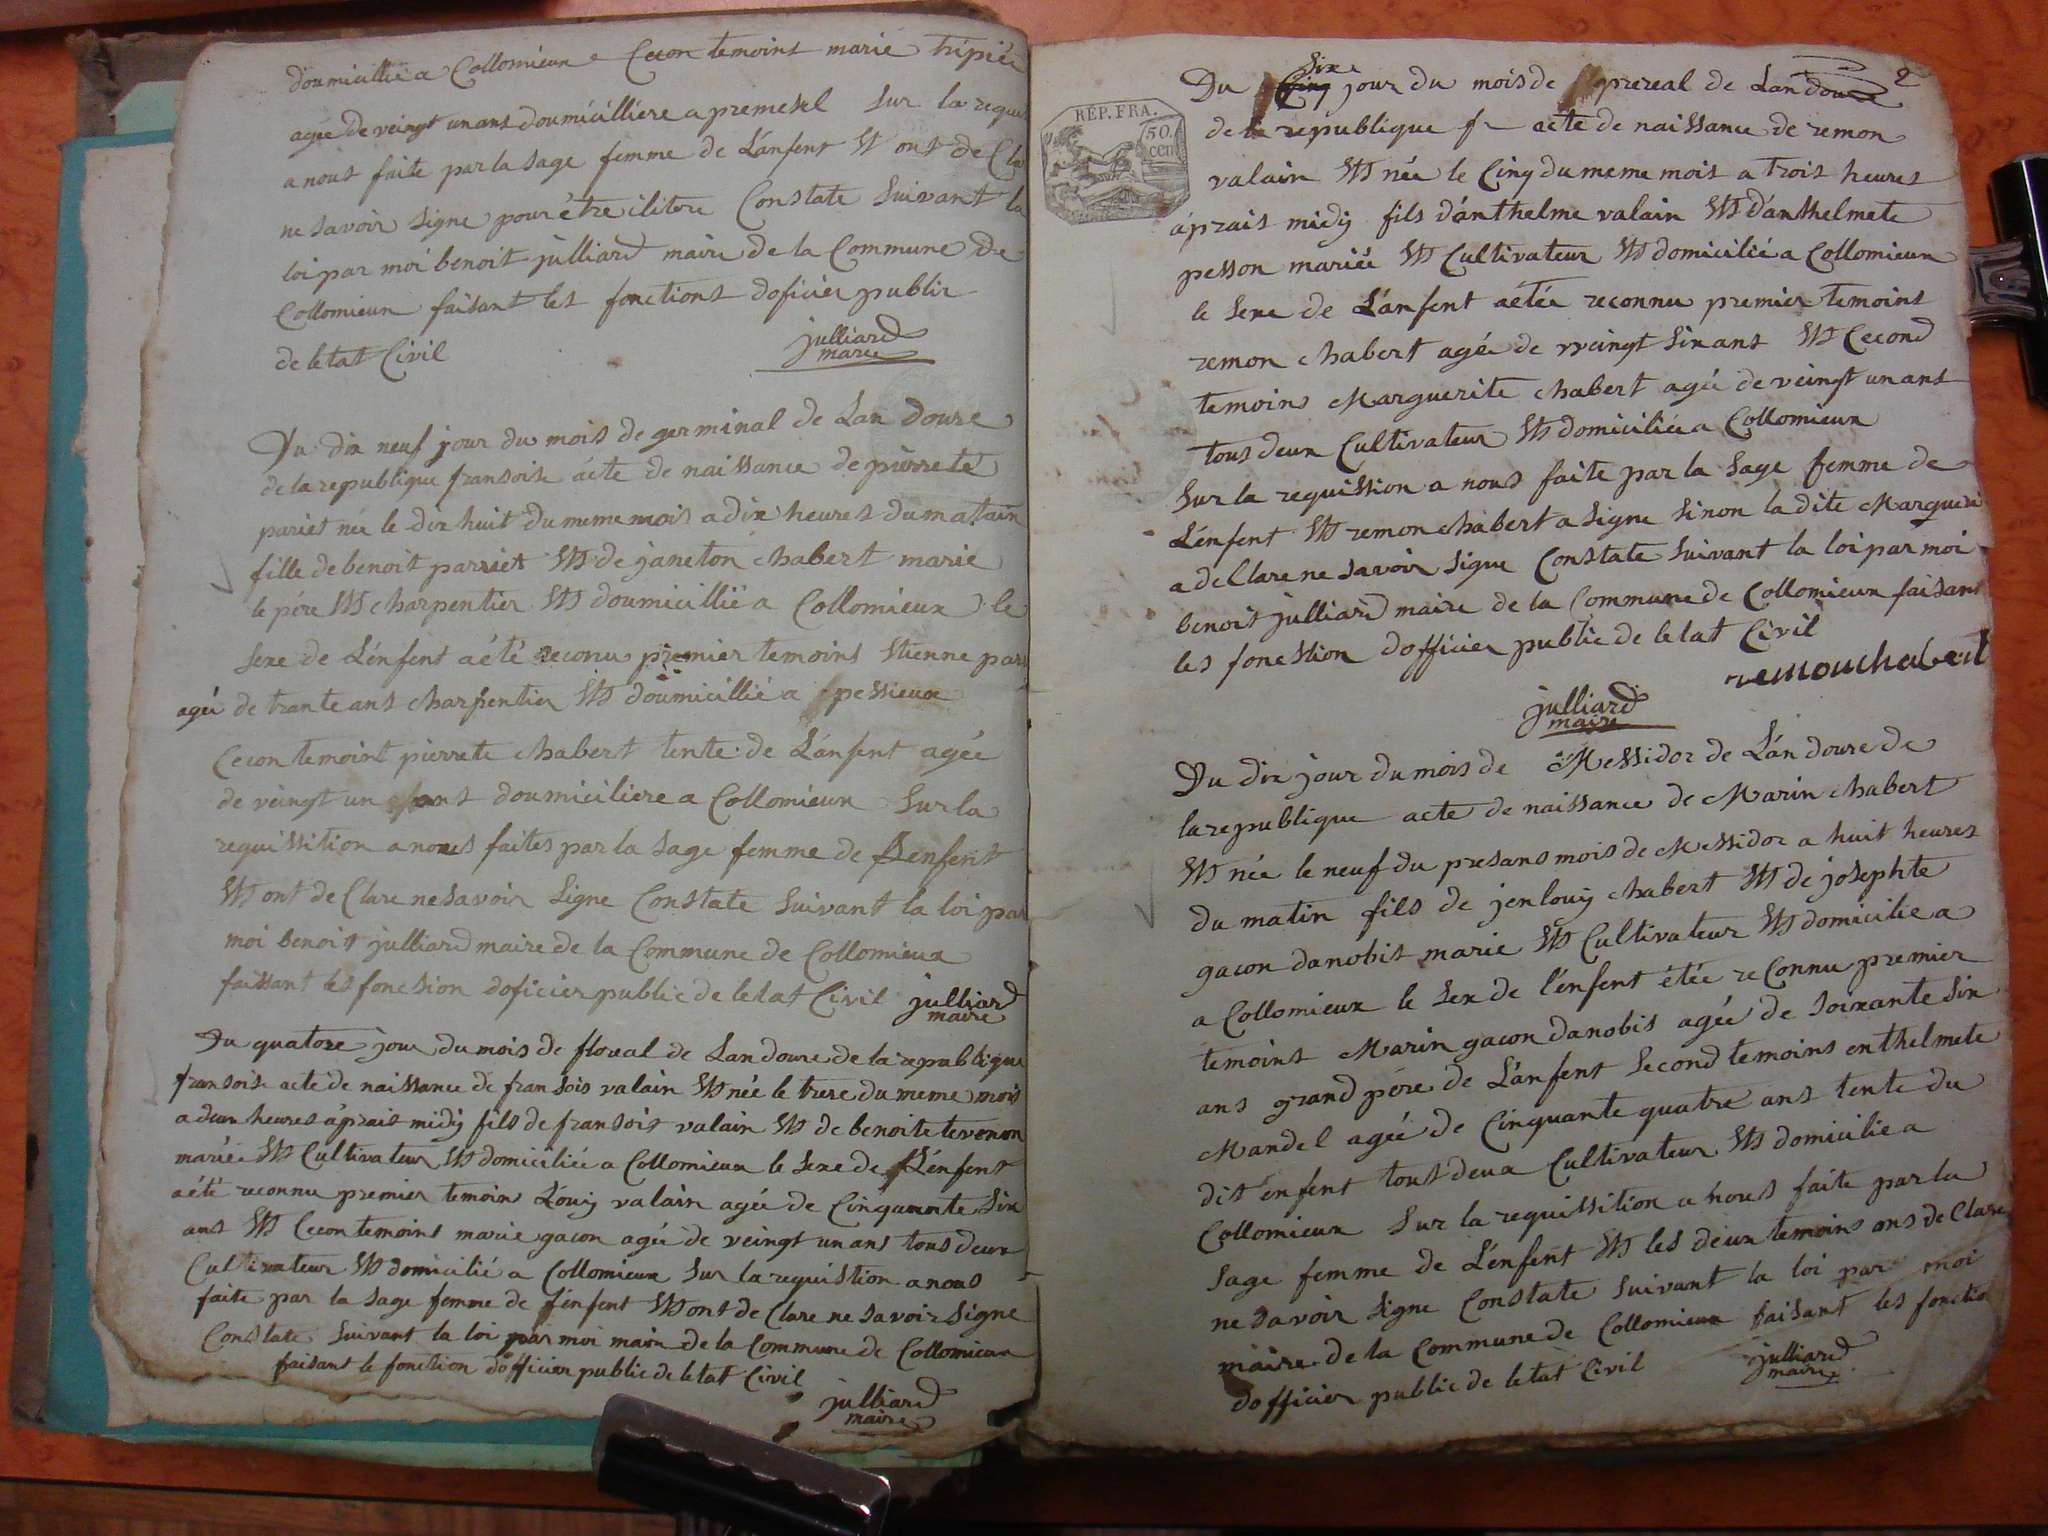 doumicillié a Collomieux Cecon temoins marie tripier
agée de veingt unans doumicilliere a premesel Sur la requi
a nous faite par la sage femme de L'anfent Et ont de Cla
ne savoir signe pour étre ilitere Constate Suivant la
loi par moi benoit julliard maire de la Commune De
Collomieux faisant les fonctions doficier public
de letat Civil
julliard
marie
Du dix neuf jour du mois de germinal de Lan douze
de la republique fransoise acte de naissance de pierrete
pariet née le dix huit du meme mois a dix heures du matain
fille de benoit parriet Et de janeton chabert marie
le pére Et charpentier Et doumicillié a Collomieux le
Sexe de L'énfent a été reconu premier temoins Etienne par
agée de trante ans charpentier Et doumicillié a pessieux
Cecon temoint pierrete chabert tente de L'anfent agée
de veingt un ans doumiciliere a Collomieux Sur la
requissition a nous faites par la sage femme de Lenfent
Et ont de Clare ne savoir Signe Constate Suivant la loi par
moi benoit julliard maire de la Commune de Collomieux
faissant les fonction doficier public de letat Civil julliard
maire
Du quatorze jour du mois de floreal de Lan douze de la republique
fransoise acte de naissance de fransois valain Et née le treze du meme mois
a deux heures áprais midy fils de fransois valain Et de benoite tevenon
mariée Et Cultivateur Et domiciliée a Collomieux le Sexe de L'énfent
a été reconnu premier temoin L'ouiy valain agée de Cinquante Six
ans Et Cecon temoins marie gacon agée de veingt un ans tous deux
Cultivateur Et domicilié a Collomieux Sur la requistion a nous
faite par la sage femme de l'énfent Et ont de Clare ne savoir signe
Constate Suivant la loi par moi maire de la Commune de Collomieux
faisant le fonction dofficier public de letat Civil
julliard
maire
2
Six
Du Cinq jour du mois de prereal de Lan douze
de la republique fr acte de naissance de remon
valain Et née le Cinq du meme mois a trois heures
áprais midy fils d'anthelme valain Et d'anthelmete
pesson mariée Et Cultivateur Et domiciliée a Collomieux
le Sexe de L'anfent aétée reconnu premier temoins
remon chabert agée de veingt Six ans Et Cecond
temoins Marguerite chabert agée de veingt un ans
tous deux Cultivateur Et domiciliée a Collomieux
Sur la requission a nous faite par la Sage femme de
L'énfent Et remon chabert a Signe Sinon la dite Marguerite
a deClare ne savoir Signe Constate Suivant la loi par moi
benoit julliard maire de la Commune de Collomieux faisant
les fonction dofficier public de letat Civil
remonchabert
julliard
maire
Du dix jour du mois de Messidor de L'an douze de
la republique acte de naissance de Marin chabert
Et née le neuf du presans mois de Messidor a huit heures
du matin fils de jenlouiy chabert Et de josephte
gacon danobis marie Et Cultivateur Et domicilie a
a Collomieux le Sex de l'énfent étée reConnu premier
temoins Marin gacon danobis agée de Soixante Six
ans grand pére de L'anfent Second temoins enthelmete
Mandel agée de Cinquante quatre ans tente du
dit énfent tous deux Cultivateur Et domicilie a
Collomieux Sur la requissition a nous faite par la
Sage femme de L'énfent Et les deux temoins ons de Clare
ne savoir Signe Constate Suivant la loi par moi
maire de la Commune de Collomieux faisant les fonction
dofficier public de letat Civil
julliard
maire
RÉP. FRA.
50
cen